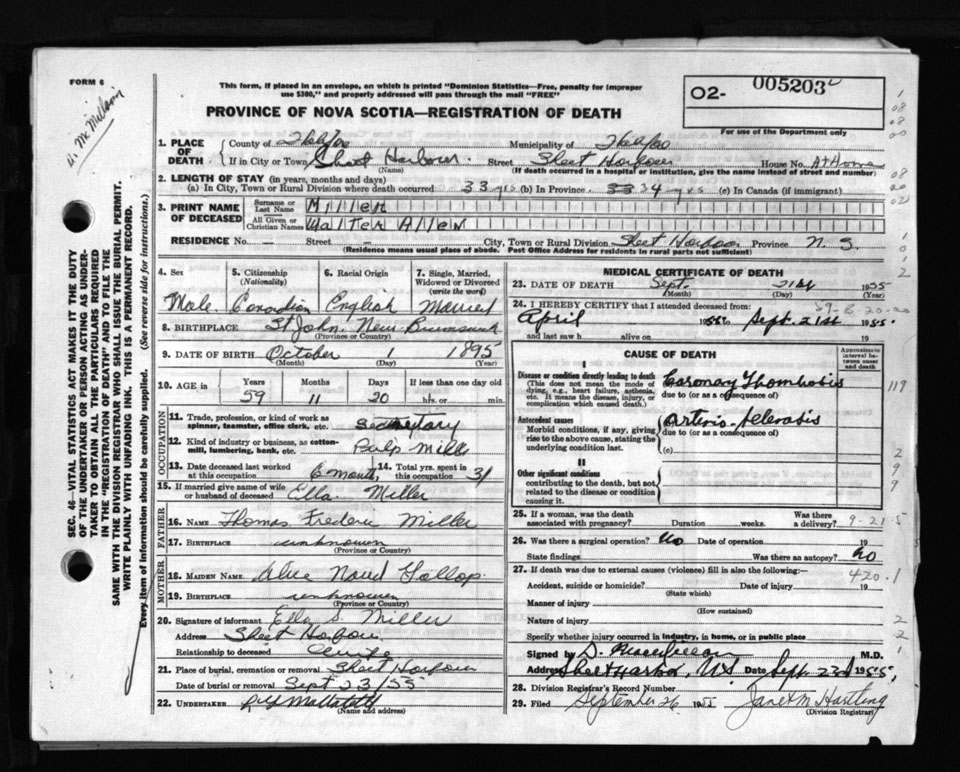 FORM 6
This form, if placed in an envelope, on which is printed "Dominion Statistics—Free, penalty for improper
use $300," and properly addressed will pass through the mail "FREE"
O2- 005203
PROVINCE OF NOVA SCOTIA—REGISTRATION OF DEATH
For use of the Department only
D. McMillan
SEC. 46—VITAL STATISTICS ACT MAKES IT THE DUTY
OF THE UNDERTAKER OR PERSON ACTING AS UNDER-
TAKER TO OBTAIN ALL THE PARTICULARS REQUIRED
IN THE "REGISTRATION OF DEATH" AND TO FILE THE
SAME WITH THE DIVISION REGISTRAR WHO SHALL ISSUE THE BURIAL PERMIT.
WRITE PLAINLY WITH UNFADING INK. THIS IS A PERMANENT RECORD.
Every item of information should be carefully supplied. (See reverse side for instructions.)
1. PLACE OF DEATH County of Halifax Municipality of Halifax
If in City or Town Sheet Harbour Street Sheet Harbour House No. At Home
(Name) (If death occurred in a hospital or institution, give the name instead of street and number)
2. LENGTH OF STAY (in years, months and days)
(a) In City, Town or Rural Division where death occurred 33 yrs (b) In Province 34 yrs (c) In Canada (if immigrant)
3. PRINT NAME OF DECEASED Surname or Last Name Miller
All Given or Christian Names Walter Allen
RESIDENCE No. — Street — City, Town or Rural Division Sheet Harbour Province N. S.
(Residence means usual place of abode. Post Office Address for residents in rural parts not sufficient)
4. Sex 5. Citizenship (Nationality) 6. Racial Origin 7. Single, Married, Widowed or Divorced (write the word)
Male Canadian English Married
8. BIRTHPLACE St John, New Brunswick
(Province or Country)
9. DATE OF BIRTH October 1 1895
(Month) (Day) (Year)
10. AGE in Years Months Days If less than one day old
59 11 20 hrs. or min.
OCCUPATION
11. Trade, profession, or kind of work as spinner, teamster, office clerk, etc. Secretary
12. Kind of industry or business, as cotton-mill, lumbering, bank, etc. Pulp Mill
13. Date deceased last worked at this occupation 6 months 14. Total yrs. spent in this occupation 31
15. If married give name of wife or husband of deceased Ella Miller
FATHER
16. NAME Thomas Frederic Miller
17. BIRTHPLACE unknown
(Province or Country)
MOTHER
18. MAIDEN NAME Alice Gallop
19. BIRTHPLACE unknown
(Province or Country)
20. Signature of informant Ella S. Miller
Address Sheet Harbour
Relationship to deceased wife
21. Place of burial, cremation or removal Sheet Harbour
Date of burial or removal Sept 23/55
22. UNDERTAKER
(Name and address)
MEDICAL CERTIFICATE OF DEATH
23. DATE OF DEATH Sept. 21st 1955
(Month) (Day) (Year)
24. I HEREBY CERTIFY that I attended deceased from:
April 1955 to Sept. 21st 1955
and last saw h alive on 19
CAUSE OF DEATH
Approximate interval between onset and death
I
Disease or condition directly leading to death
(This does not mean the mode of dying, e.g., heart failure, asthenia, etc. It means the disease, injury, or complication which caused death.)
Coronary Thrombosis
due to (or as a consequence of)
Antecedent causes
Morbid conditions, if any, giving rise to the above cause, stating the underlying condition last.
Arterio-sclerosis
due to (or as a consequence of)
(c)
II
Other significant conditions
contributing to the death, but not related to the disease or condition causing it.
25. If a woman, was the death associated with pregnancy? Duration weeks. Was there a delivery?
26. Was there a surgical operation? No Date of operation 19
State findings Was there an autopsy? No
27. If death was due to external causes (violence) fill in also the following:
420.1
Accident, suicide or homicide? Date of injury 19
(State which)
Manner of injury
(How sustained)
Nature of injury
Specify whether injury occurred in industry, in home, or in public place
Signed by D. M.D.
Address Sheet Harbour, N.S. Date Sept. 23d 1955
28. Division Registrar's Record Number
29. Filed September 26 1955 Janet M Hartling
(Division Registrar)